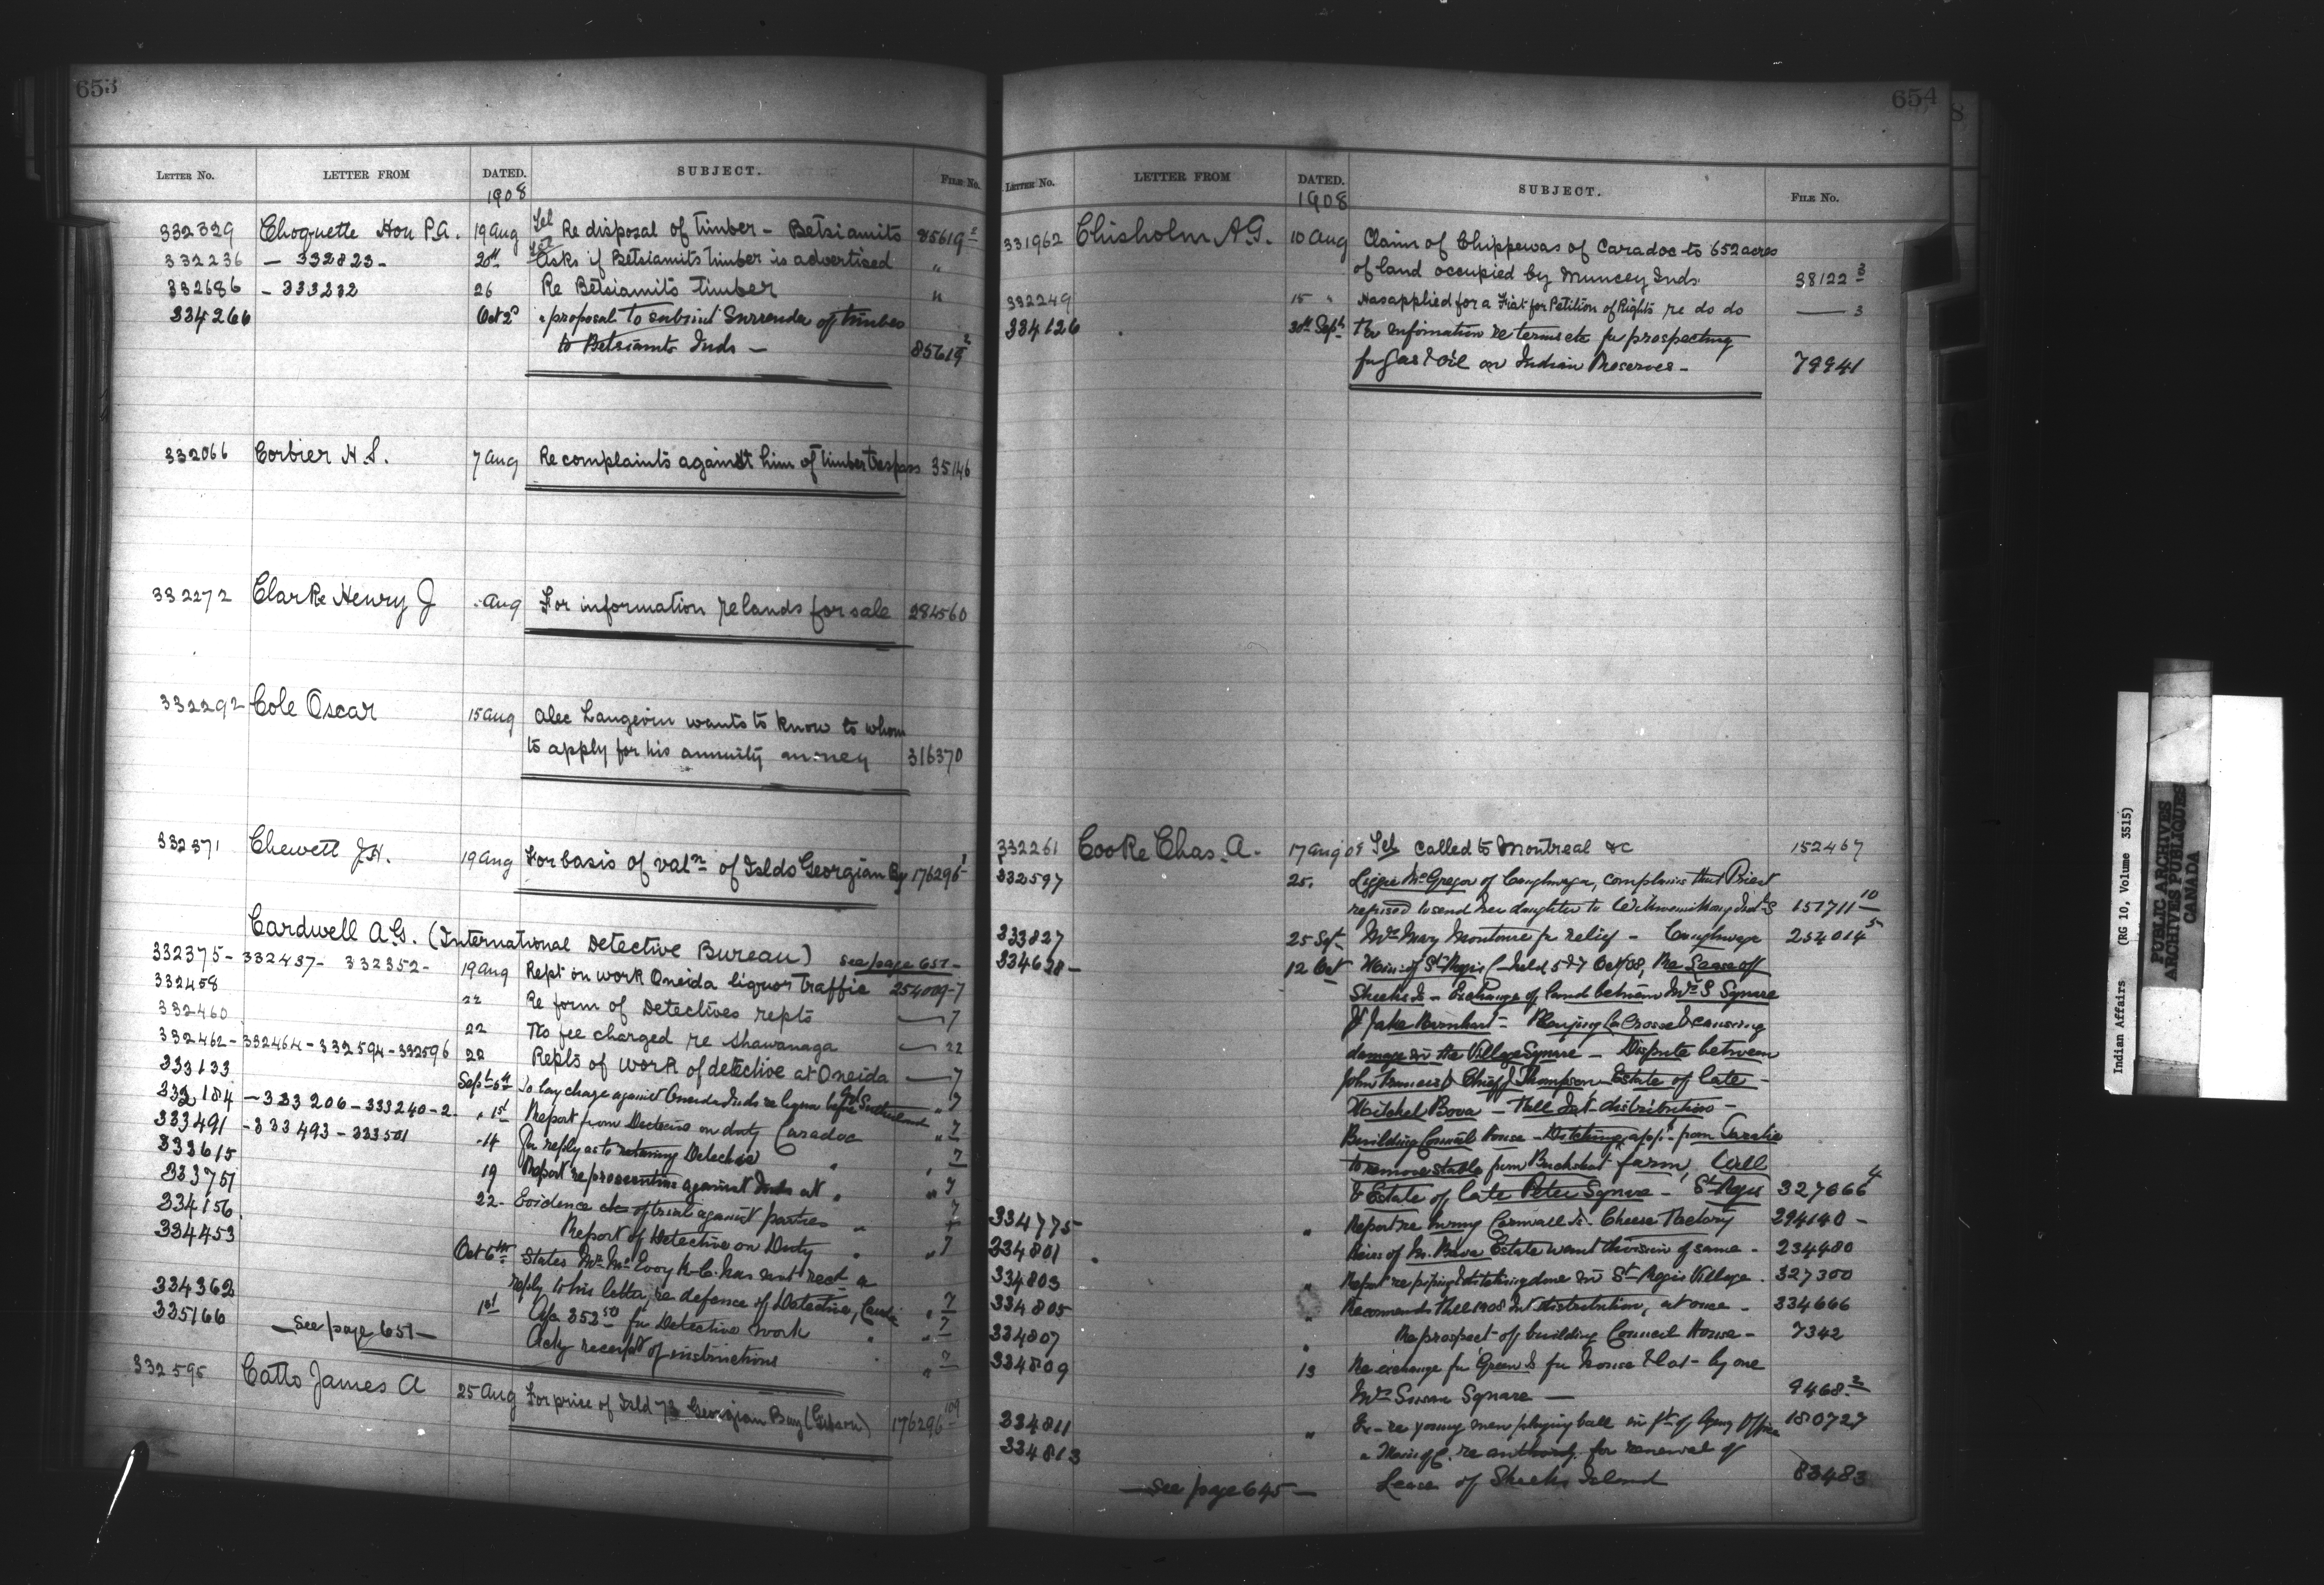 653
LETTER NO. LETTER FROM DATED. SUBJECT. FILE No.
1908
332329 Choquette Hon P.A. 19 Aug Tel Re disposal of timber - Betsiamits 85619
332236 - 332823 - 20th Asks if Betsiamits timber is advertised "
332686 - 333232 26 Re Betsiamits timber "
334266 Oct 2d " proposal to submit Surrender of timber
to Betsiamits Inds - 85619 2
332066 Corbier H.S. 7 Aug Re complaints against him of timber trespass 35146
332272 Clarke Henry J Aug For information re lands for sale 284560
332292 Cole Oscar 15 Aug Alec Langevin wants to know to whom
to apply for his annuity money 316370
332371 Chewett J.H. 19 Aug For basis of valn of Islds Georgian By 176296 1
Cardwell A.G. (International Detective Bureau) see page 651 -
332375 - 332437 - 332352 - 19 Aug Rept on work Oneida liquor traffic 254009-7
332458 22 Re form of Detectives repts 7
332460 22 No fee charged re Shawanaga 22
332462 - 332464 - 332594 - 332596 22 Repts of work of detective at Oneida 7
333133 Sept 6th To lay charge against Oneida Inds re liquor before 7
332184 - 333206 - 333240-2 " 1st Report from Detective on duty Caradoc " 7
333491 - 333493 - 333501 " 14 for reply as to Detective " 7
333615 19 Report re prosecution against Inds at " " 7
333751 22 - Evidence &c of trial against parties " 7
334156 Report of Detective on Duty " " 7
334453 Oct 6th States Mr McEvoy K.C. has not recd a
reply to his letter, re defence of Detective, " 7
334362 1st 352.50 for Detective work " " 7
335166 Ackg receipt of instructions " " 7
- see page 651 -
332595 Catto James A 25 Aug For price of Isld 73 Georgian Bay (Gibson) 176296 109
654
LETTER NO. LETTER FROM DATED. SUBJECT. FILE No.
1908
331962 Chisholm A.G. 10 Aug Claim of Chippewas of Caradoc to 652 acres
of land occupied by Muncey Inds 38122 3
332249 15 " Has applied for a Fiat for Petition of Rights re do do — 3
334126 30th Sept. For information re terms etc for prospecting
for gas & oil on Indian Reserves - 79941
332261 Cooke Chas. A. 17 Aug 08 Tel Called to Montreal &c 152467
332597 25. Lizzie McGregor of Caughnaga, complains that Priest
refused to send her daughter to Wikwemikong Indl S 151711 10
333827 25 Sept. Mrs Mary Montour for relief - Caughnaga 254014 5
334638 - 12 Oct Mins of St Regis C held 5 & 7 Oct/08, Re Lease of
Sheeks Is - Exchange of land between Mrs S Square
& Jake Barnhart - Playing LaCrosse & causing
damage in the Village Square - Dispute between
John Francis & Chief J Thompson Estate of late -
Mitchel Bova - Fall Int. distribution -
Building Council House - Ditching, appn from
to remove stable from farm, Well
& Estate of late Peter Square - St Regis 327066 4
334775 " Report re Cornwall Is. Cheese Factory 294140 -
334801 Heirs of M. Bova Estate want division of same - 234480
334803 " Report re piping & ditching done in St Regis Village. 327300
334805 " Recommends Fall 1908 Int distribution, at once - 334666
334807 " Re prospect of building Council House - 7342
334809 13 Re exchange for Green Is for house & lot - by one
Mrs Susan Square - 9468 2
334811 " re young men playing ball in ft of Agency Office 180727
334813 " Mins of C. re authority for renewal of
Lease of Sheeks Island 83483
- see page 645 -
Indian Affairs (RG 10, Volume 3515)
PUBLIC ARCHIVES
ARCHIVES PUBLIQUES
CANADA